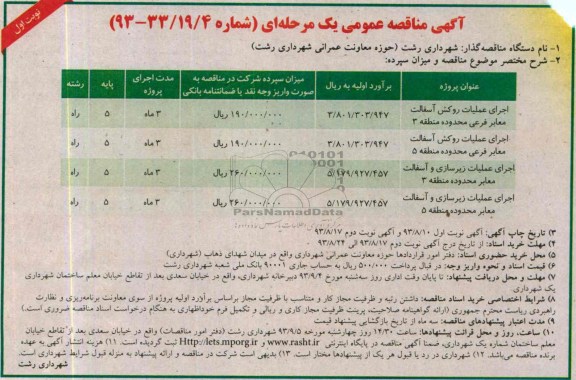 نوبت اول
آگهی مناقصه عمومی یک مرحله‌ای (شماره ۹۳-۳۳/۱۹/۴)
۱- نام دستگاه مناقصه‌گذار: شهرداری رشت (حوزه معاونت عمرانی شهرداری رشت)
۲- شرح مختصر موضوع مناقصه و میزان سپرده:
عنوان پروژه | برآورد اولیه به ریال | میزان سپرده شرکت در مناقصه به صورت واریز وجه نقد یا ضمانتنامه بانکی | مدت اجرای پروژه | پایه | رشته
اجرای عملیات روکش آسفالت معابر فرعی محدوده منطقه ۳ | ۳/۸۰۱/۳۰۳/۹۴۷ | ۱۹۰/۰۰۰/۰۰۰ ریال | ۳ ماه | ۵ | راه
اجرای عملیات روکش آسفالت معابر فرعی محدوده منطقه ۵ | ۳/۸۰۱/۳۰۳/۹۴۷ | ۱۹۰/۰۰۰/۰۰۰ ریال | ۳ ماه | ۵ | راه
اجرای عملیات زیرسازی و آسفالت معابر محدوده منطقه ۳ | ۵/۱۷۹/۹۲۷/۴۵۷ | ۲۶۰/۰۰۰/۰۰۰ ریال | ۳ ماه | ۵ | راه
اجرای عملیات زیرسازی و آسفالت معابر محدوده منطقه ۵ | ۵/۱۷۹/۹۲۷/۴۵۷ | ۲۶۰/۰۰۰/۰۰۰ ریال | ۳ ماه | ۵ | راه
ParsNamadData
۳) تاریخ چاپ آگهی: آگهی نوبت اول ۹۳/۸/۱۰ و آگهی نوبت دوم ۹۳/۸/۱۷
۴) مهلت خرید اسناد: از تاریخ درج آگهی نوبت دوم ۹۳/۸/۱۷ الی ۹۳/۸/۲۴
۵) محل خرید حضوری اسناد: دفتر امور قراردادها حوزه معاونت عمرانی شهرداری واقع در میدان شهدای ذهاب (شهرداری)
۶) قیمت اسناد و نحوه واریز وجه: در قبال پرداخت ۵۰۰/۰۰۰ ریال به حساب جاری ۹۰۰۰۱ بانک ملی شعبه شهرداری رشت
۷) مهلت و محل دریافت پیشنهاد: تا پایان وقت اداری روز سه‌شنبه مورخ ۹۳/۹/۴ دبیرخانه شهرداری، واقع در خیابان سعدی بعد از تقاطع خیابان معلم ساختمان شهرداری
یک شهرداری.
۸) شرایط اختصاصی خرید اسناد مناقصه: داشتن رتبه و ظرفیت مجاز کار و متناسب با ظرفیت مجاز براساس برآورد اولیه پروژه از سوی معاونت برنامه‌ریزی و نظارت
راهبردی ریاست محترم جمهوری (ارائه گواهینامه صلاحیت، پرینت ظرفیت مجاز کاری و ریالی و تکمیل فرم خوداظهاری به هنگام درخواست اسناد مناقصه ضروری است.)
۹) مدت اعتبار پیشنهادهای مناقصه: سه ماه از تاریخ بازگشایی پیشنهاد قیمت
۱۰) ساعت، روز و محل قرائت پیشنهادها: ساعت ۱۴/۳۰ روز چهارشنبه مورخه ۹۳/۹/۵ شهرداری رشت (دفتر امور مناقصات) واقع در خیابان سعدی بعد از تقاطع خیابان
معلم ساختمان شماره یک شهرداری، ضمنا آگهی مناقصه در پایگاه اینترنتی www.rasht.ir و Http://iets.mporg.ir ثبت گردیده است. ۱۱) هزینه انتشار آگهی به عهده
برنده مناقصه می‌باشد. ۱۲) شهرداری در رد یا قبول هر یک از پیشنهادها مختار است. ۱۳) بدیهی است شرکت در مناقصه و ارائه پیشنهاد به منزله قبول شرایط شهرداری است.
شهرداری رشت